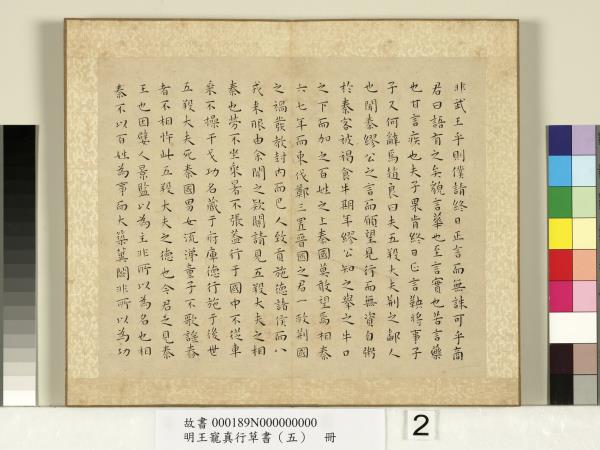 非武王乎則僕請終日正言而無誅可乎商
君曰語有之矣貌言華也至言實也苦言藥
也甘言疾也夫子果肯終日正言鞅將事子
子又何辭焉趙良曰夫五羖大夫荆之鄙人
也聞秦繆公之言而願望見行而無資自粥
於秦客被褐食牛期年繆公知之舉之牛口
之下而加之百姓之上秦國莫敢望焉相秦
六七年而東伐鄭三置晉國之君一救荆國
之禍發教封內而巴人致貢施德諸侯而八
戎來服由余聞之欵關請見五羖大夫之相
秦也勞不坐乘暑不張蓋行于國中不從車
乘不操干戈功名藏于府庫德行施于後世
五羖大夫死秦國男女流涕童子不歌謠舂
者不相杵此五羖大夫之德也今君之見秦
王也因嬖人景監以為主非所以為名也相
秦不以百姓為事而大築冀闕非所以為功
故書 000189N000000000
明王寵真行草書（五） 冊
2